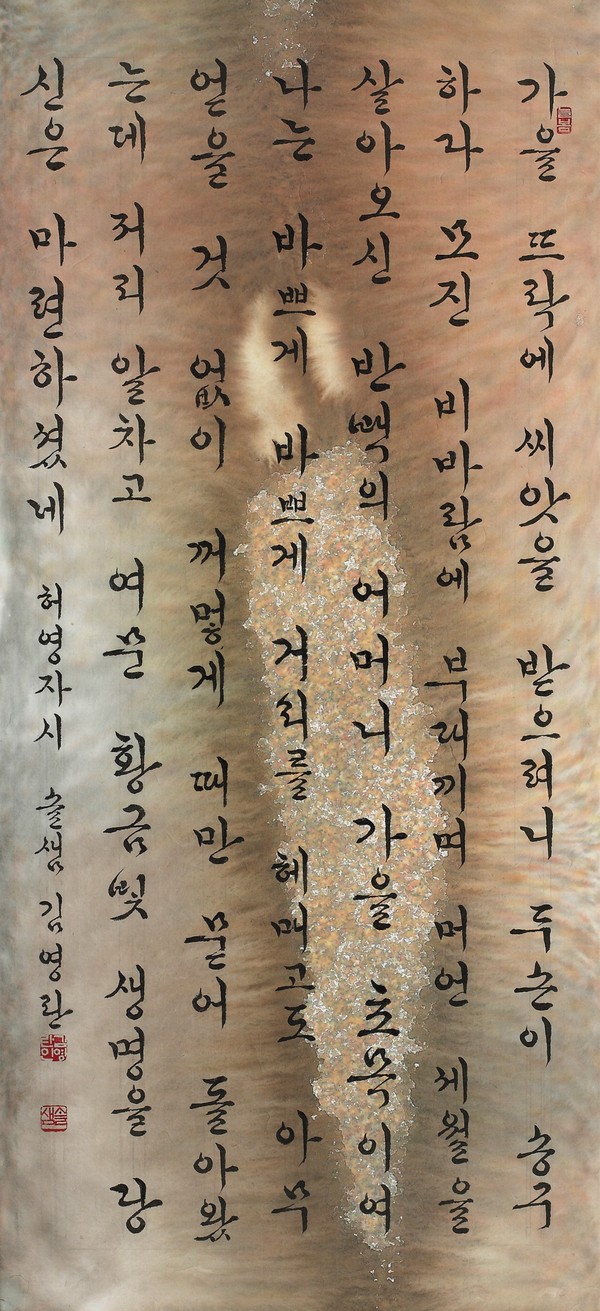 가을 뜨락에 씨앗을 받으려니 두손이 송구
하다 모진 비바람에 부대끼며 머언 세월을
살아오신 반백의 어머니 가을 초목이여
나는 바쁘게 바쁘게 거리를 헤매고도 아무
얻을 것 없이 꺼멓게 때만 묻어 돌아왔
는데 저리 알차고 여문 황금빛 생명을 당
신은 마련하셨네 허영자시 솔샘 김영란